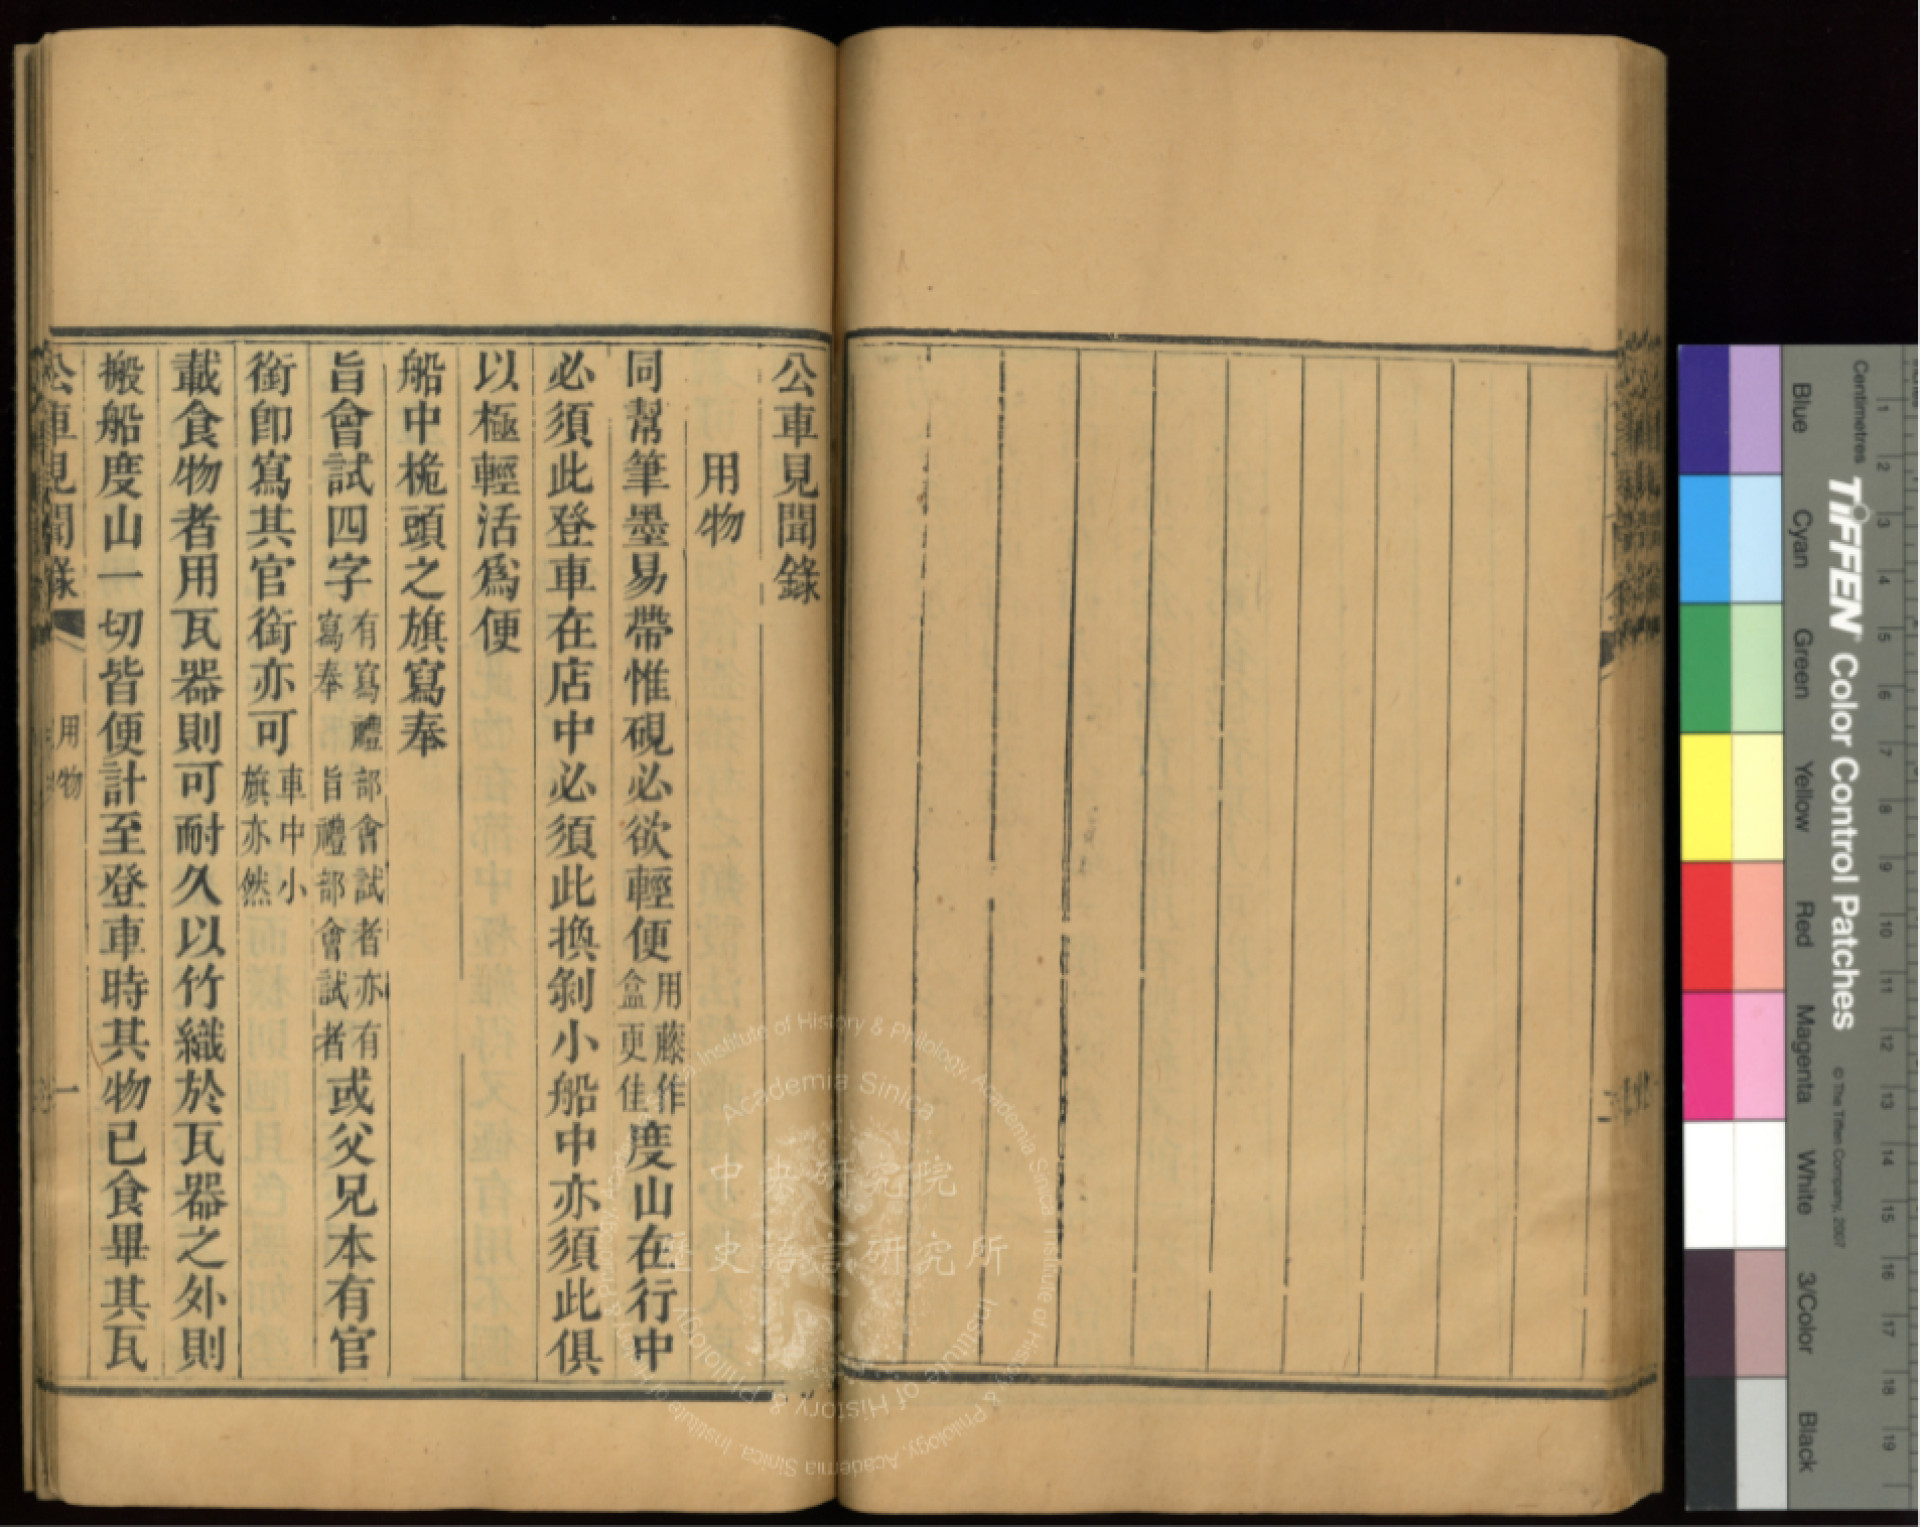 公車見聞錄
用物
同幫筆墨易帶惟硯必欲輕便用藤作盒更佳度山在行中
必須此登車在店中必須此換剝小船中亦須此俱
以極輕活爲便
船中桅頭之旗寫奉
旨會試四字有寫禮部會試者亦有寫奉旨禮部會試者或父兄本有官
銜卽寫其官銜亦可車中小旗亦然
載食物者用瓦器則可耐久以竹織於瓦器之外則
搬船度山一切皆便計至登車時其物已食畢其瓦
公車見聞錄 用物 一
中央研究院
歷史語言研究所
Academia Sinica
Institute of History & Philology, Academia Sinica
Centimetres
TIFFEN Color Control Patches
© The Tiffen Company, 2007
Blue
Cyan
Green
Yellow
Red
Magenta
White
3/Color
Black
1 2 3 4 5 6 7 8 9 10 11 12 13 14 15 16 17 18 19